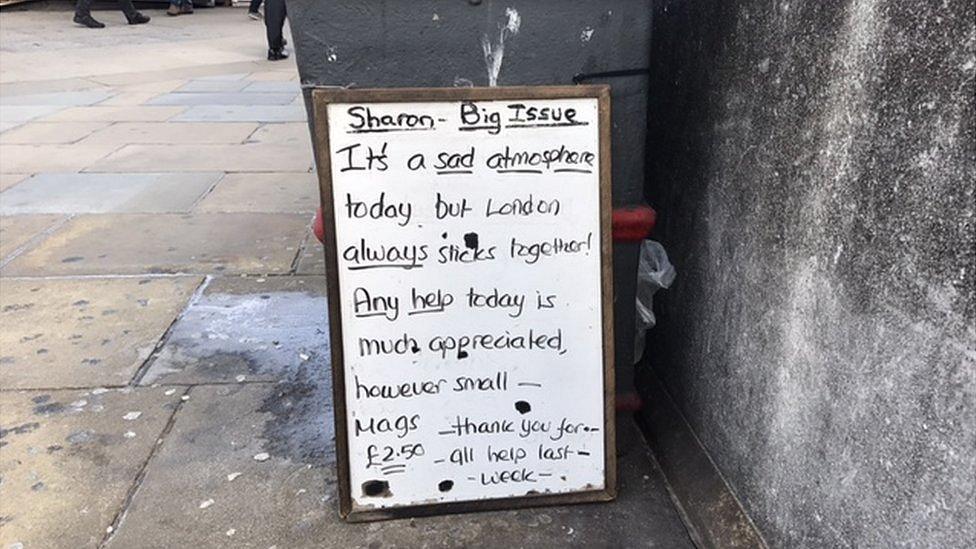 Sharon - Big Issue
It's a sad atmosphere
today but London
always sticks together!
Any help today is
much appreciated,
however small —
Mags - thank you for -
£2.50 - all help last -
- week -